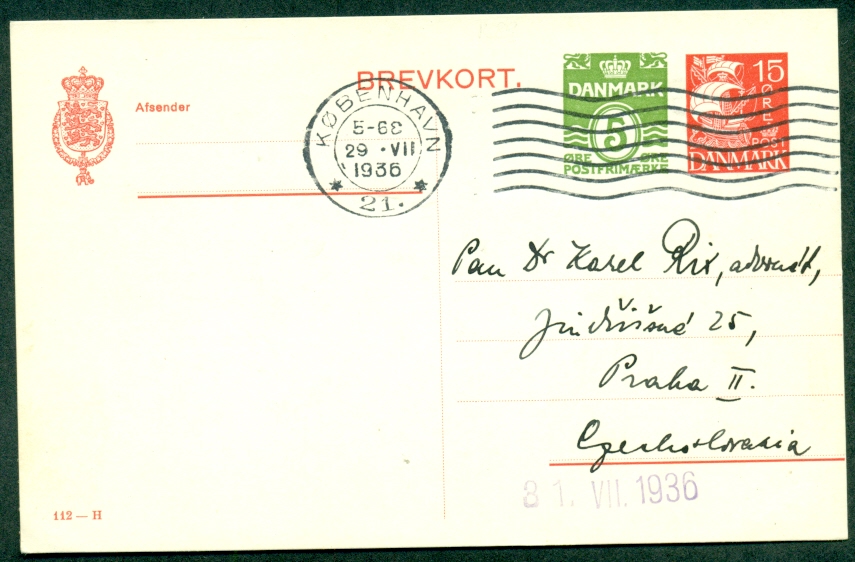 BREVKORT.
Afsender
KØBENHAVN
29 · VII
1936
* 21. *
DANMARK
5
ØRE ØRE
POSTFRIMÆRKE
15
ØRE
POST
DANMARK
Pan Dr Karel Rix, advokát,
Jindřišská 25,
Praha II.
Czechoslovakia
31. VII. 1936
112 — H